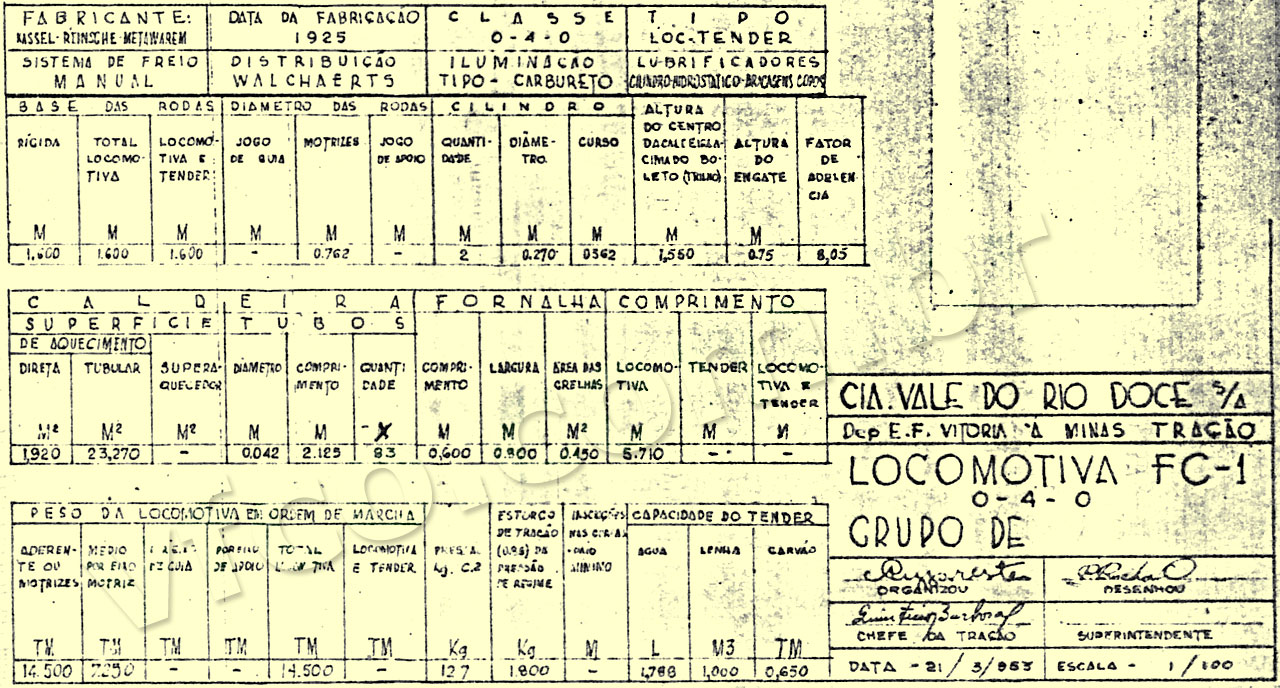 FABRICANTE: DATA DA FABRICAÇÃO CLASSE TIPO
1925 0-4-0 LOC-TENDER
SISTEMA DE FREIO DISTRIBUIÇÃO ILUMINAÇÃO LUBRIFICADORES
MANUAL WALCHAERTS TIPO-CARBURETO
BASE DAS RODAS DIAMETRO DAS RODAS CILINDRO ALTURA
DO CENTRO
RÍGIDA TOTAL LOCOMO- JOGO MOTRIZES JOGO QUANTI- DIÂME- CURSO ALTURA FATOR
LOCOMO- TIVA E DE GUIA DE APOIO DADE TRO. CIMA DO BO- DO DE
TIVA TENDER LETO (TRILHO) ENGATE
CIA
M M M M M M M M M M M
1.600 1.600 1.600 - 0.762 - 2 0.270 0362 1,550 0.75 8,05
CALDEIRA FORNALHA COMPRIMENTO
SUPERFICIE TUBOS
DE AQUECIMENTO
DIRETA TUBULAR SUPERA- DIÂMETRO COMPRI- QUANTI COMPRI- LARGURA AREA DAS LOCOMO- TENDER LOCOMO-
QUECEDOR MENTO DADE MENTO GRELHAS TIVA TIVA E
TENDER
M² M² M² M M M M M² M M M
1,920 23,270 - 0,042 2.125 83 0,600 0.800 0.450 5.710 - -
CIA. VALE DO RIO DOCE S/A
Dep E.F. VITORIA A MINAS TRAÇÃO
LOCOMOTIVA FC-1
0-4-0
GRUPO DE
PESO DA LOCOMOTIVA EM ORDEM DE MARCHA ESFORÇO CAPACIDADE DO TENDER
DE TRAÇÃO
ADEREN- MEDIO POR EIXO TOTAL LOCOMOTIVA (0.85) DA AGUA LENHA CARVÃO
TE OU POR EIXO DE GUIA DE APOIO E TENDER PRESSÃO
MOTRIZES MOTRIZ DE REGIME
TM TM TM TM TM TM Kg Kg M L M3 TM
14.500 7.250 - - 14.500 - 12.7 1.800 - 1,788 1,000 0,650
ORGANIZOU DESENHOU
CHEFE DA TRAÇÃO SUPERINTENDENTE
DATA - 21/3/953 ESCALA - 1/100
vfco.com.br